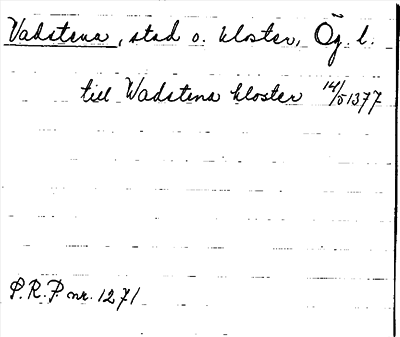 Vadstena, stad o. kloster, Ög. l.
till Wadstena kloster 14/5 1377
P.R.P. nr. 1271